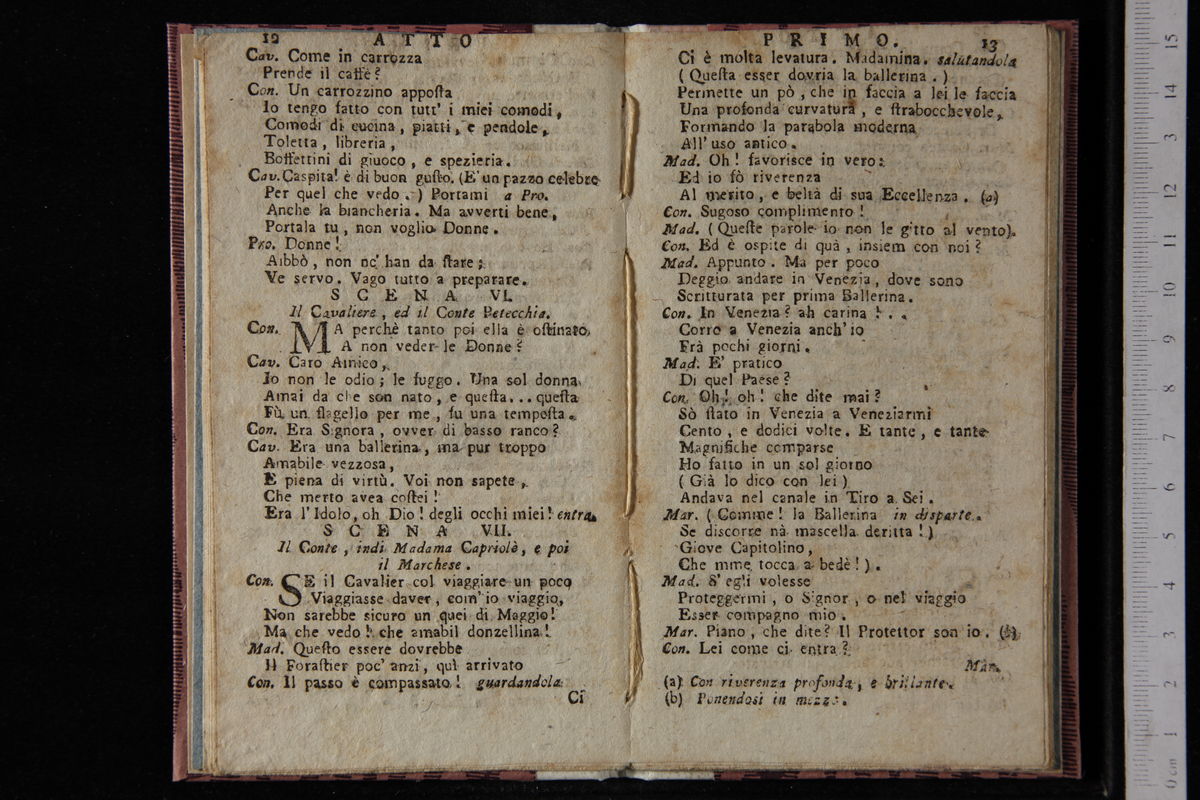 12 ATTO
Cav. Come in carrozza
Prende il caffè?
Con. Un carrozzino apposta
Io tengo fatto con tutt' i miei comodi,
Comodi di cucina, piatti, e pendole,
Toletta, libreria,
Boffettini di giuoco, e spezieria.
Cav. Caspita! è di buon gusto. (E' un pazzo celebre
Per quel che vedo.) Portami a Pro.
Anche la biancheria. Ma avverti bene,
Portala tu, non voglio Donne.
Pro. Donne!
Aibbò, non nc' han da stare;
Ve servo. Vago tutto a preparare.
SCENA VI.
Il Cavaliere, ed il Conte Petecchia.
Con. MA perchè tanto poi ella è ostinato,
A non veder le Donne?
Cav. Caro Amico,
Io non le odio; le fuggo. Una sol donna
Amai da che son nato, e questa... questa
Fù un flagello per me, fu una tempesta.
Con. Era Signora, ovver di basso ranco?
Cav. Era una ballerina, ma pur troppo
Amabile vezzosa,
E piena di virtù. Voi non sapete,
Che merto avea costei!
Era l'Idolo, oh Dio! degli occhi miei! entra.
SCENA VII.
Il Conte, indi Madama Capriolè, e poi
il Marchese.
Con. SE il Cavalier col viaggiare un poco
Viaggiasse daver, com' io viaggio,
Non sarebbe sicuro un quei di Maggio!
Ma che vedo! che amabil donzellina!
Mad. Questo essere dovrebbe
Il Forastier poc' anzi, quì arrivato
Con. Il passo è compassato! guardandola
Ci
PRIMO. 13
Ci è molta levatura. Madamina. salutandola
(Questa esser dovria la ballerina.)
Permette un pò, che in faccia a lei le faccia
Una profonda curvatura, e strabocchevole,
Formando la parabola moderna
All' uso antico.
Mad. Oh! favorisce in vero:
Ed io fò riverenza
Al merito, e beltà di sua Eccellenza. (a)
Con. Sugoso complimento!
Mad. (Queste parole io non le gitto al vento).
Con. Ed è ospite di quà, insiem con noi?
Mad. Appunto. Ma per poco
Deggio andare in Venezia, dove sono
Scritturata per prima Ballerina.
Con. In Venezia? ah carina!..
Corro a Venezia anch' io
Frà pochi giorni.
Mad. E' pratico
Di quel Paese?
Con. Oh! oh! che dite mai?
Sò stato in Venezia a Veneziarmi
Cento, e dodici volte. E tante, e tante
Magnifiche comparse
Ho fatto in un sol giorno
(Già lo dico con lei)
Andava nel canale in Tiro a Sei.
Mar. (Comme! la Ballerina in disparte.
Se discorre nà mascella deritta!)
Giove Capitolino,
Che mme tocca a bedè!).
Mad. S' egli volesse
Proteggermi, o Signor, o nel viaggio
Esser compagno mio.
Mar. Piano, che dite? Il Protettor son io. (b)
Con. Lei come ci entra?
Mar.
(a) Con riverenza profonda, e brillante.
(b) Ponendosi in mezzo.
15
14
13
12
11
10
9
8
7
6
5
4
3
2
1
0 cm